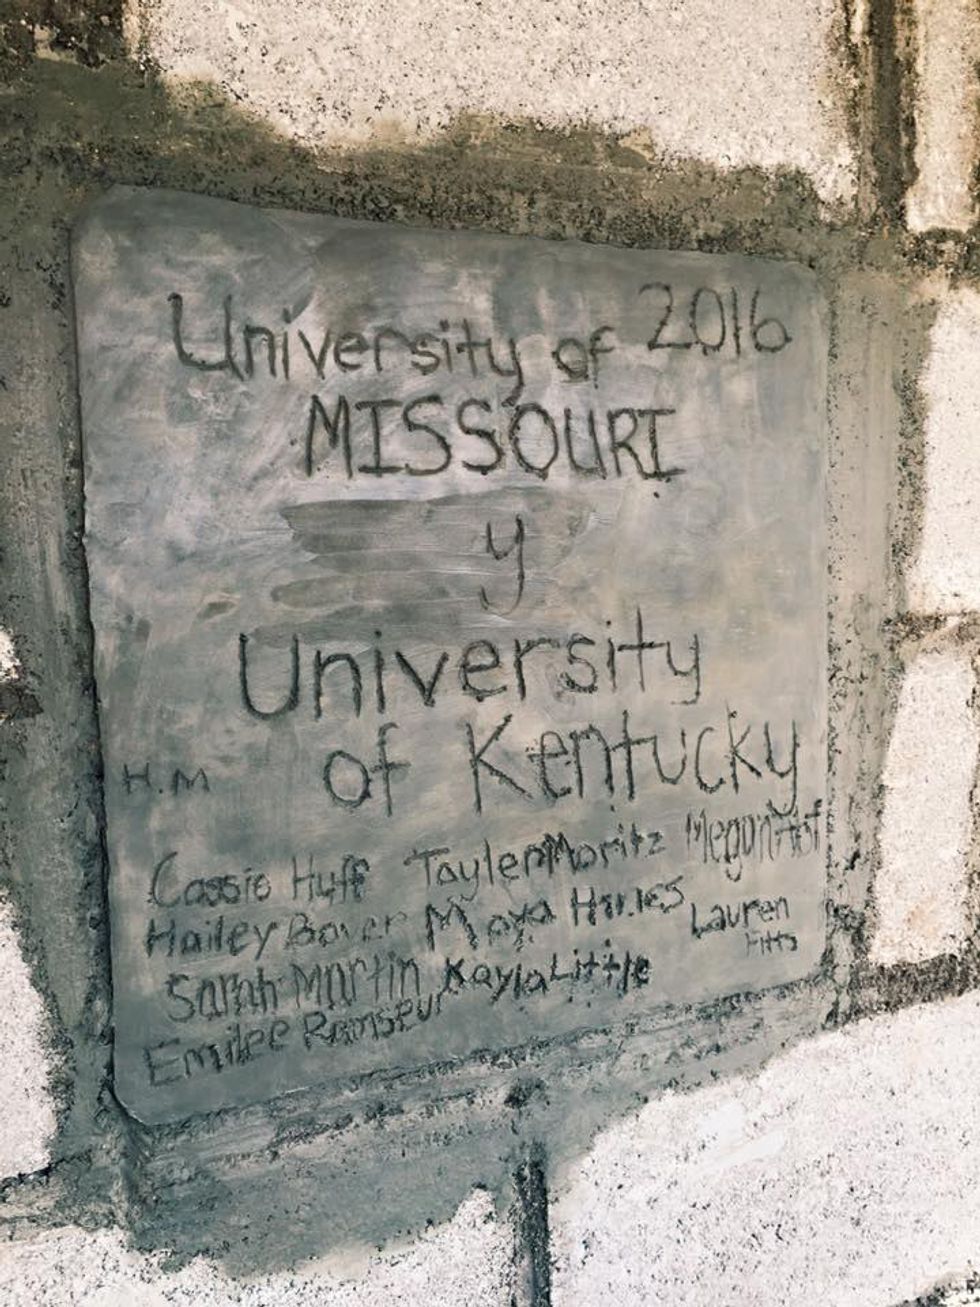 University of 2016
MISSOURI
y
University
of Kentucky
H.M
Cassie Huff Tayler Moritz Megan
Hailey Maya
Lauren
Fitts
Sarah Martin Kayla Little
Emilee Ramseur